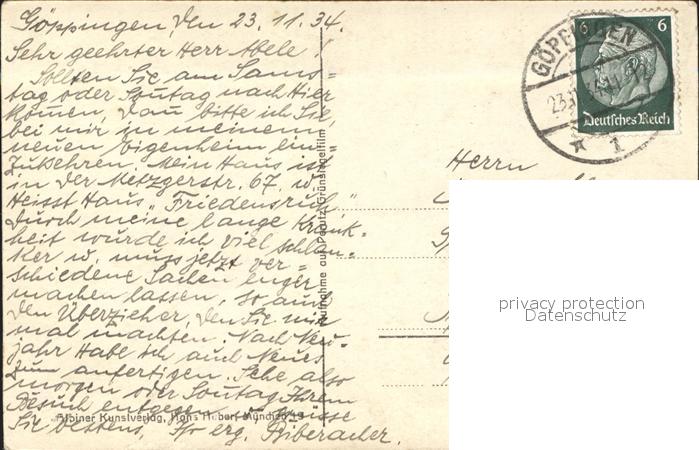 Göppingen, den 23.11.34.
Sehr geehrter Herr Abele!
Sollten Sie am Sams=
tag oder Sontag nach Hier
komen, dan bitte ich Sie,
bei mir in meinem
neuen Eigenheim ein=
zukehren. Mein Haus ist
in der Metzgerstr. 67, u.
Heisst Haus „Friedensruh"
durch meine lange Krank=
heit wurde ich viel schlan=
ker u. muss jetzt ver=
schiedene Sachen enger
machen lassen, so auch
den Überzieher, den Sie mir
mal machten. Nach Neu=
jahr Habe ich auch Neues
zum anfertigen. Sehe also
morgen oder Sontag Ihrem
Besuch entgegen u. grüsse
Sie bestens, Ihr erg. Biberacher.
Alpiner Kunstverlag, Hans Huber, München 19
Aufnahme auf Perutz-Grünsiegelfilm
GÖPPINGEN
1
6 6
Deutsches Reich
Herrn
privacy protection
Datenschutz